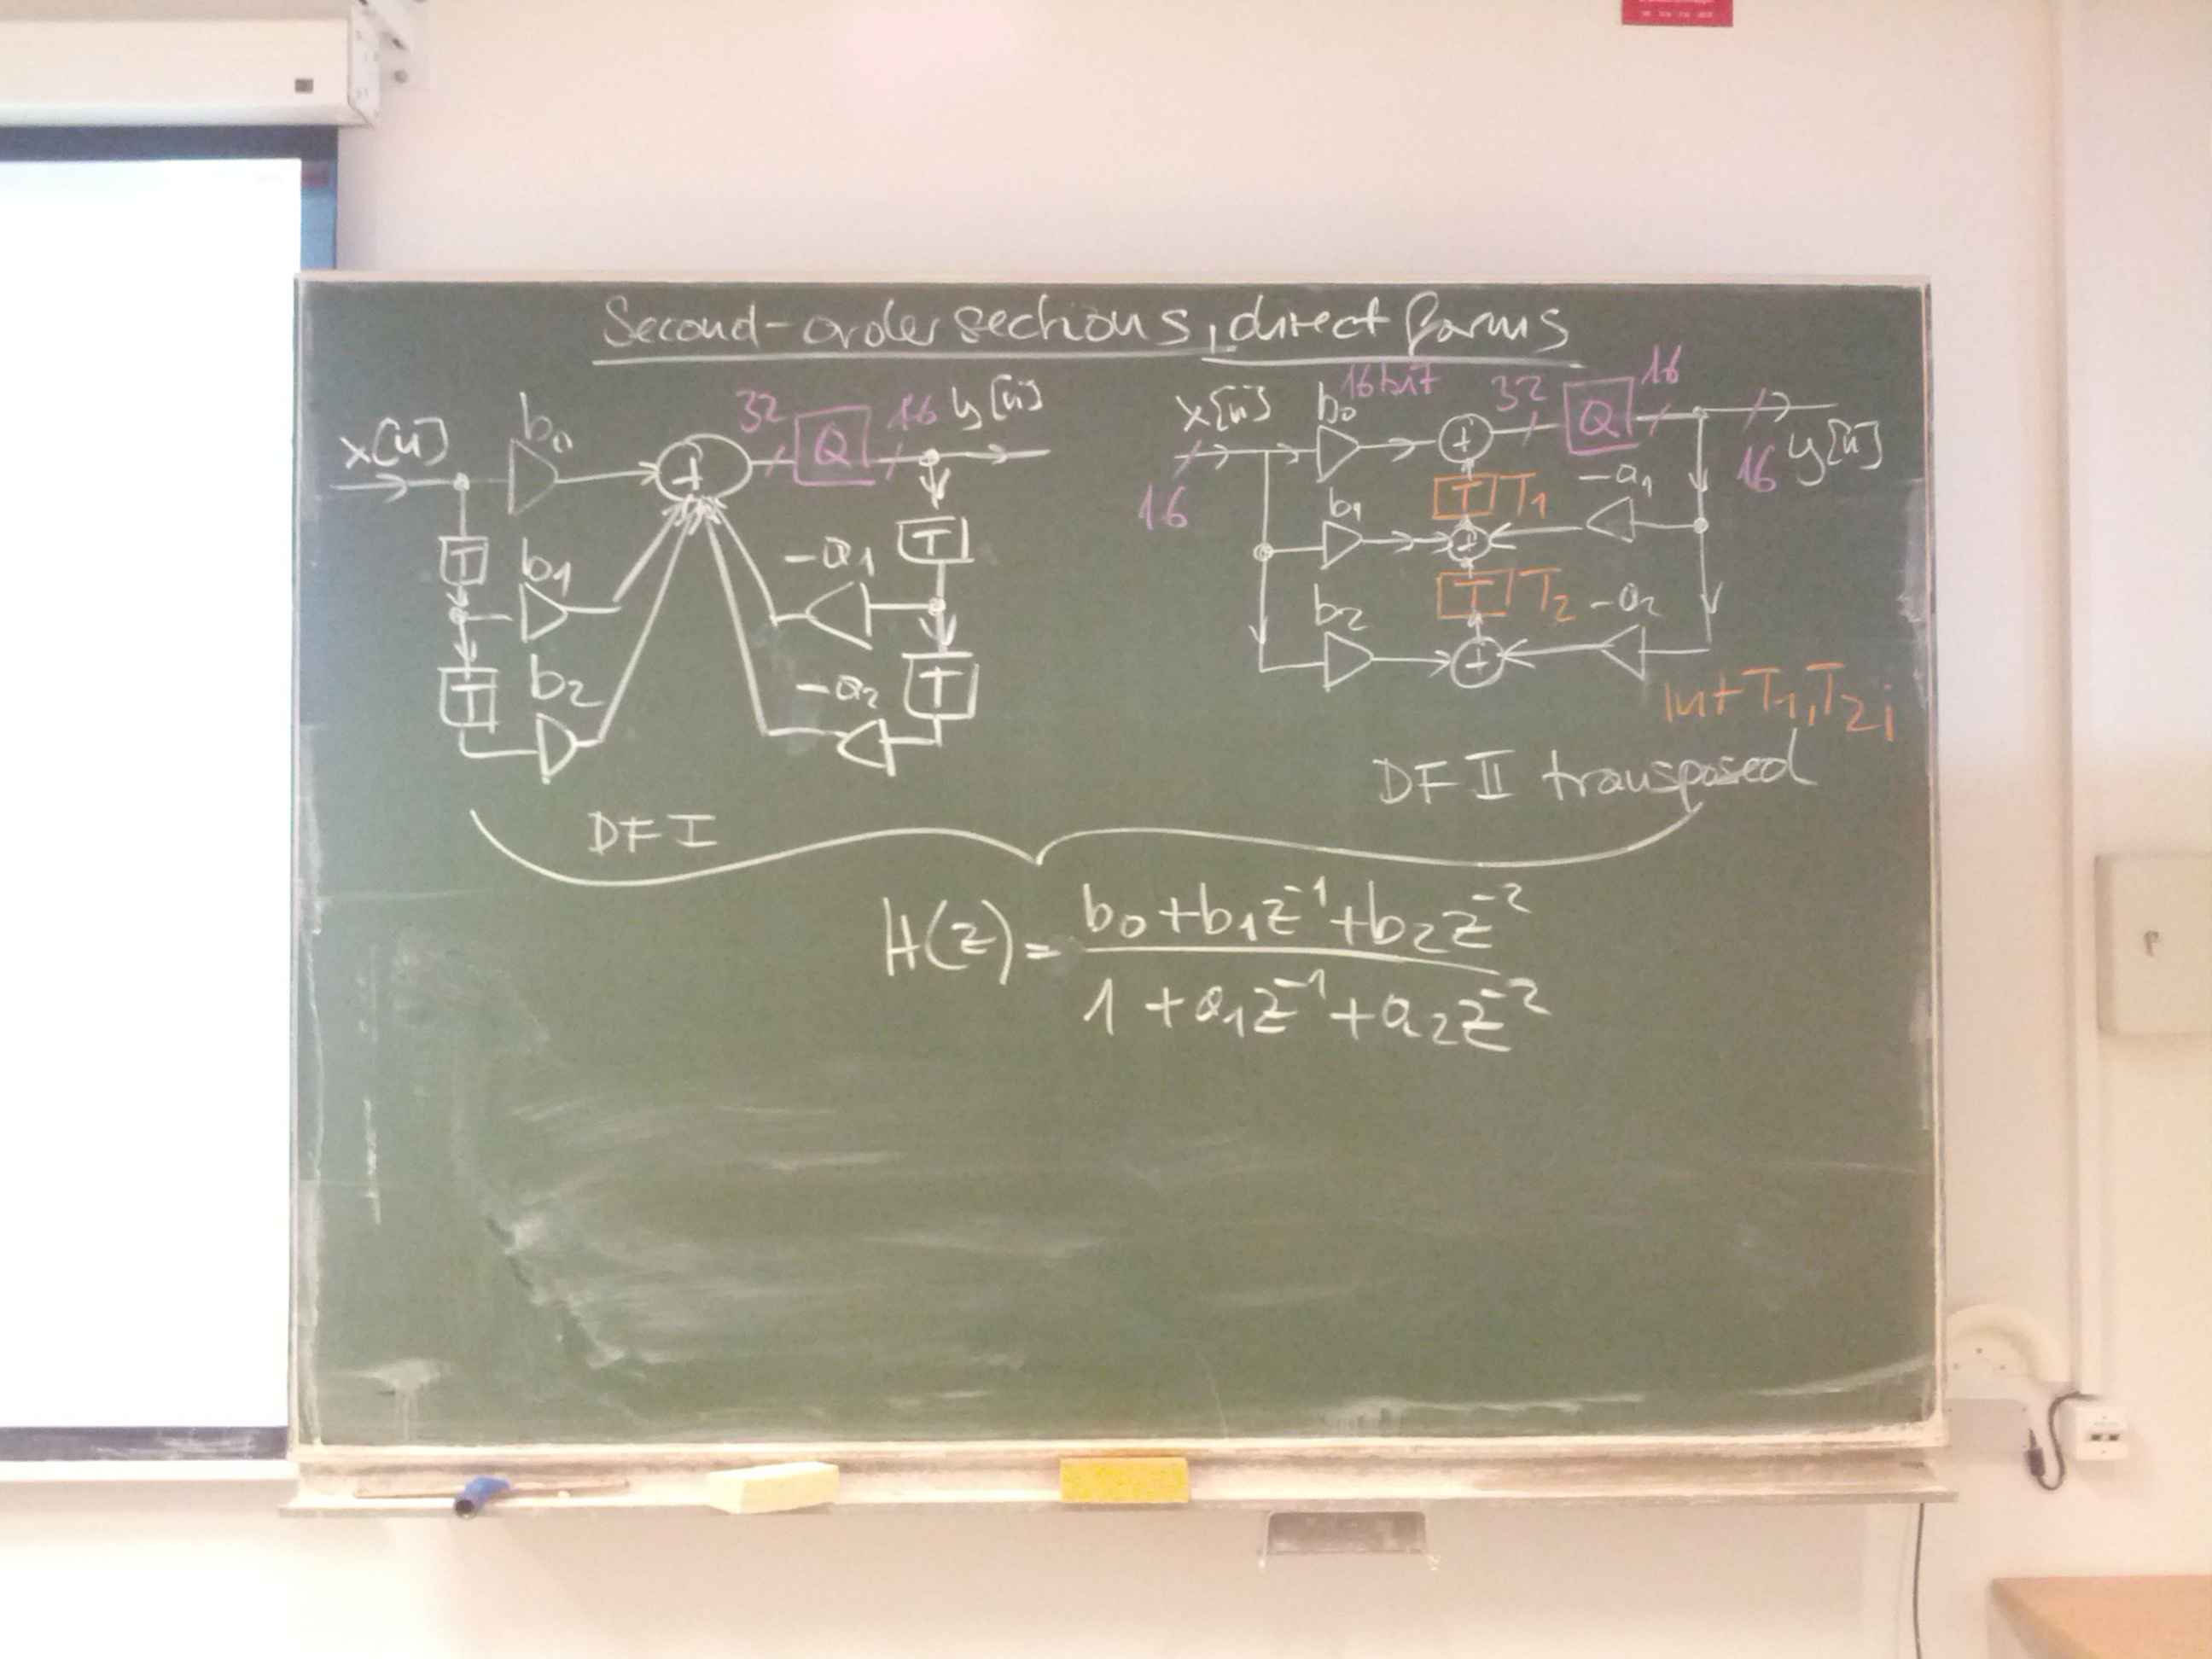 Second-order sections, direct forms
x[n] b0 32 Q 16 y[n]
T b1 -a1 T
T b2 -a2 T
DF I
x[n] 16 b0 16 bit + 32 Q 16 16 y[n]
T T1
b1 + -a1
T T2
b2 + -a2
int T1, T2;
DF II transposed
H(z) = b0+b1z^-1+b2z^-2
1+a1z^-1+a2z^-2